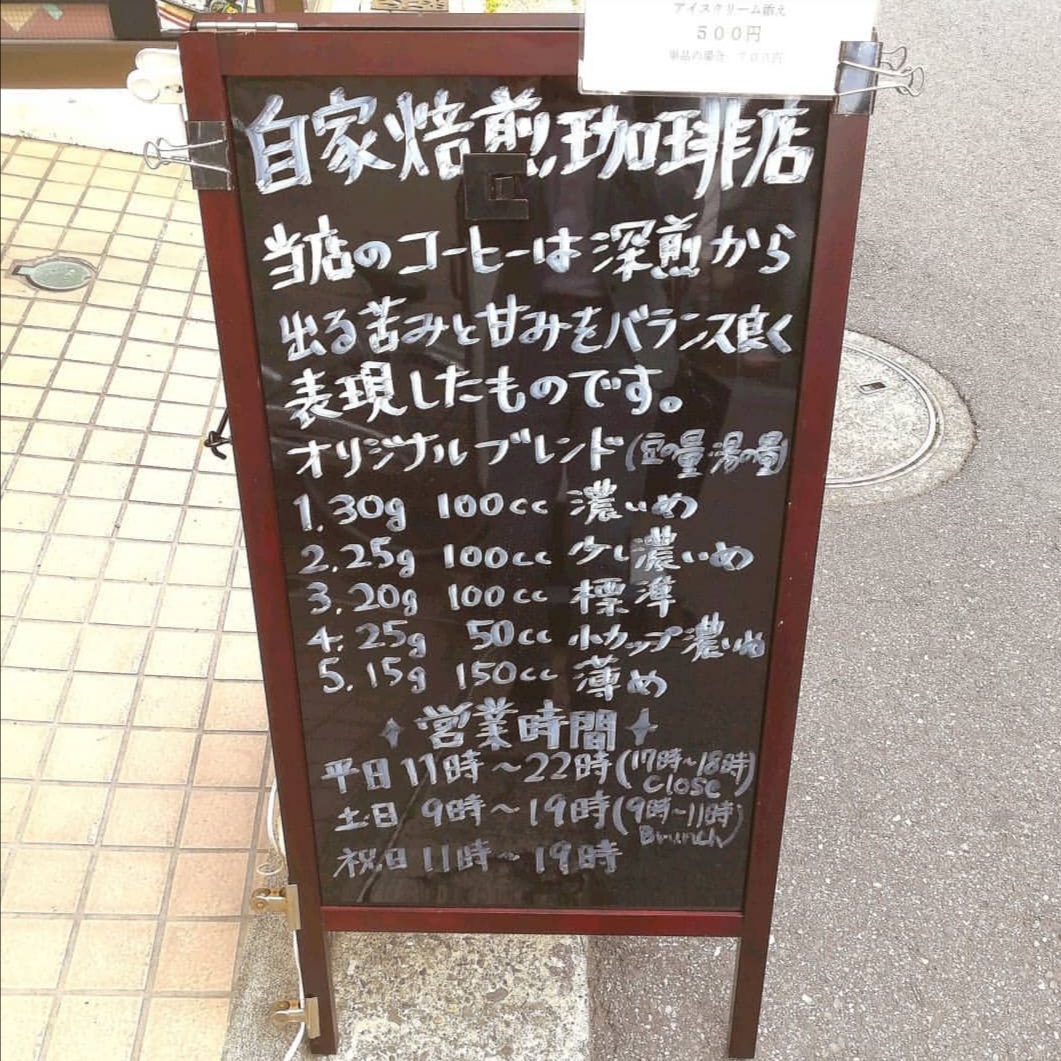 アイスクリーム添え
５００円
単品の場合 ７００円
自家焙煎珈琲店
当店のコーヒーは深煎から
出る苦みと甘みをバランス良く
表現したものです。
オリジナルブレンド(豆の量・湯の量)
1.30g 100cc 濃いめ
2.25g 100cc 少し濃いめ
3.20g 100cc 標準
4.25g 50cc 小カップ濃いめ
5.15g 150cc 薄め
営業時間
平日 11時～22時(17時～18時)
Close
土・日 9時～19時(9時～11時)
Brunch
祝日 11時～19時